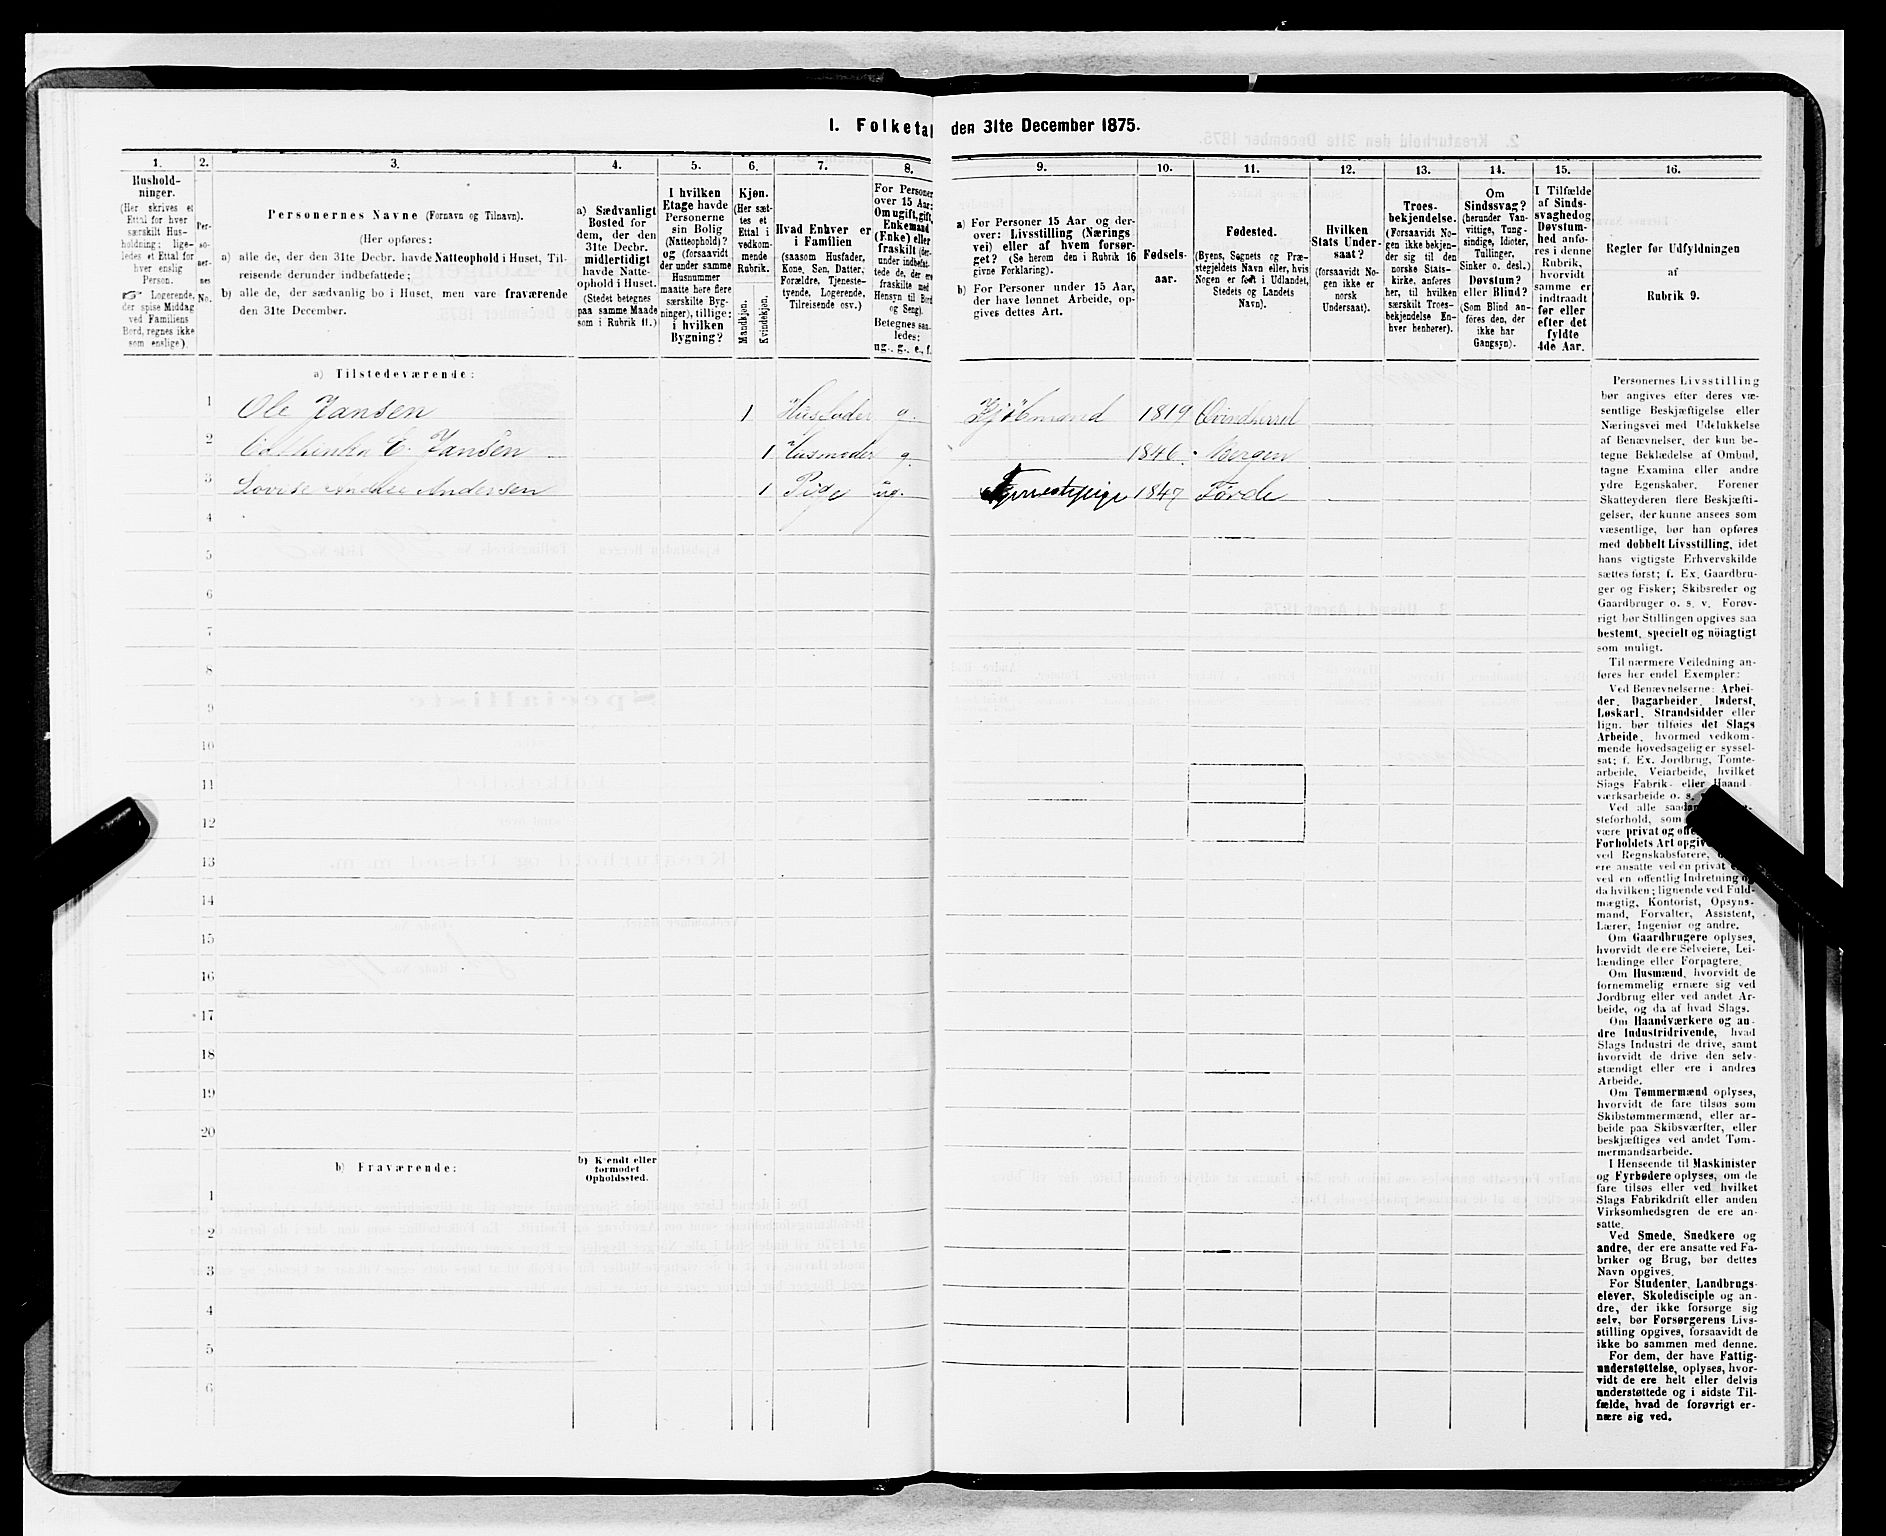 I. Folketal den 31te December 1875.
1. 2. 3. 4. 5. 6. 7. 8. 9. 10. 11. 12. 13. 14. 15. 16.
Hushold-
ninger.
(Her skrives et
Ettal for hver
særskilt Hus-
holdning; lige-
ledes et Ettal for
hver enslig
Person.
☞ Logerende,
der spise Middag
ved Familiens
Bord, regnes ikke
som enslige).
Per-
so-
ner-
nes
No.
Personernes Navne (Fornavn og Tilnavn).
(Her opføres:
a) alle de, der den 31te Decbr. havde Natteophold i Huset, Til-
reisende derunder indbefattede;
b) alle de, der sædvanlig bo i Huset, men vare fraværende
den 31te December.
a) Sædvanligt
Bosted for
dem, der den
31te Decbr.
midlertidigt
havde Natte-
ophold i Huset.
(Stedet betegnes
paa samme Maade
som i Rubrik 11.)
I hvilken
Etage havde
Personerne
sin Bolig
(Natteophold)?
og (forsaavidt
der under samme
Husnummer
maatte høre flere
særskilte Byg-
ninger), tillige:
i hvilken
Bygning?
Kjøn.
(Her sæt-
tes et
Ettal i
vedkom-
mende
Rubrik.
Mandkjøn.
Kvindekjøn.
Hvad Enhver er
i Familien
(saasom Husfader,
Kone, Søn, Datter,
Forældre, Tjeneste-
tyende, Logerende,
Tilreisende osv.)
For Personer
over 15 Aar:
Om ugift, gift,
Enkemand
(Enke) eller
fraskilt (der-
under indbefat-
tede de, der ere
fraskilte med
Hensyn til Bord
og Seng).
Betegnes saa-
ledes:
ug., g., e., f.
a) For Personer 15 Aar og der-
over: Livsstilling (Nærings
vei) eller af hvem forsør-
get? (Se herom den i Rubrik 16
givne Forklaring).
b) For Personer under 15 Aar,
der have lønnet Arbeide, op-
gives dettes Art.
Fødsels-
aar.
Fødested.
(Byens, Sognets og Præ-
stegjeldets Navn eller, hvis
Nogen er født i Udlandet,
Stedets og Landets
Navn).
Hvilken
Stats Under-
saat?
(forsaavidt No-
gen ikke er
norsk
Undersaat).
Troes-
bekjendelse.
(Forsaavidt No-
gen ikke bekjen-
der sig til den
norske Stats-
kirke, anføres
her, til hvilken
særskilt Troes-
bekjendelse En-
hver henhører).
Om
Sindssvag?
(herunder Van-
vittige, Tung-
sindige, Idioter,
Tullinger,
Sinker o. desl.)
Døvstum?
eller Blind?
(Som Blind an-
føres den, der
ikke har
Gangsyn).
I Tilfælde
af Sinds-
svaghed og
Døvstum-
hed anfø-
res i denne
Rubrik,
hvorvidt
samme er
indtraadt
før eller
efter det
fyldte
4de Aar.
Regler før Udfyldningen
af
Rubrik 9.
a) Tilstedeværende:
1 Ole Jansen 1 Husfader g. Kjöbmand 1819 Qvindherred
2 C. Jansen 1 Husmoder g. 1846 Bergen
3 Lovise Andersen 1 Pige ug. Tjenestepige 1847 Förde
4
5
6
7
8
9
10
11
12
13
14
15
16
17
18
19
20
b) Fraværende:
b) Kjendt eller
formodet
Opholdssted.
1
2
3
4
5
6
Personernes Livsstilling
bør angives efter deres væ-
sentlige Beskjæftigelse eller
Næringsvei med Udelukkelse
af Benævnelser, der kun be-
tegne Beklædelse af Ombud,
tagne Examina eller andre
ydre Egenskaber. Forener
Skatteyderen flere Beskjæfti-
gelser, der kunne ansees som
væsentlige, bør han opføres
med dobbelt Livsstilling, idet
hans vigtigste Erhvervskilde
sættes først; f. Ex. Gaardbru-
ger og Fisker; Skibsreder og
Gaardbruger o. s. v. Forøv-
rigt bør Stillingen opgives saa
bestemt, specielt og nöiagtigt
som muligt.
Til nærmere Veiledning an-
føres her endel Exempler:
Ved Benævnelserne: Arbei-
der, Dagarbeider, Inderst,
Løskarl, Strandsidder eller
lign. bør tilføies det Slags
Arbeide, hvormed vedkom-
mende hovedsagelig er syssel-
sat; f. Ex. Jordbrug, Tomte-
arbeide, Veiarbeide, hvilket
Slags Fabrik- eller Haand-
værksarbeide o. s.
Ved alle
steforhold, som
være privat og
Forholdets Art
ved Regnskabsførere,
ere ansatte ved en privat
ved en offentlig Indretning
da hvilken; lignende ved Fuld-
mægtig, Kontorist, Opsyns-
mand, Forvalter, Assistent,
Lærer, Ingeniør og andre.
Om Gaardbrugere oplyses,
hvorvidt de ere Selveiere, Lei-
lændinge eller Forpagtere.
Om Husmænd, hvorvidt de
fornemmelig ernære sig ved
Jordbrug eller ved andet Ar-
beide, og da af hvad Slags.
Om Haandværkere og an-
dre Industridrivende, hvad
Slags Industri de drive, samt
hvorvidt de drive den selv-
stændigt eller ere i andres
Arbeide.
Om Tømmermænd oplyses,
hvorvidt de fare tilsøs som
Skibstømmermænd, eller ar-
beide paa Skibsværfter, eller
beskjæftiges ved andet Tøm-
mermandsarbeide.
I Henseende til Maskinister
og Fyrbødere oplyses, om de
fare tilsøs eller ved hvilket
Slags Fabrikdrift eller anden
Virksomhedsgren de ere an-
satte.
Ved Smede, Snedkere og
andre, der ere ansatte ved Fa-
briker og Brug, bør dettes
Navn opgives.
For Studenter, Landbrugs-
elever, Skoledisciple og an-
dre, der ikke forsørge sig
selv, bør Forsørgerens Livs-
stilling opgives, forsaavidt de
ikke bo sammen med denne.
For dem, der have Fattig-
understøttelse, oplyses, hvor-
vidt de ere helt eller delvis
understøttede og i sidste Til-
fælde, hvad de forøvrigt er-
nære sig ved.